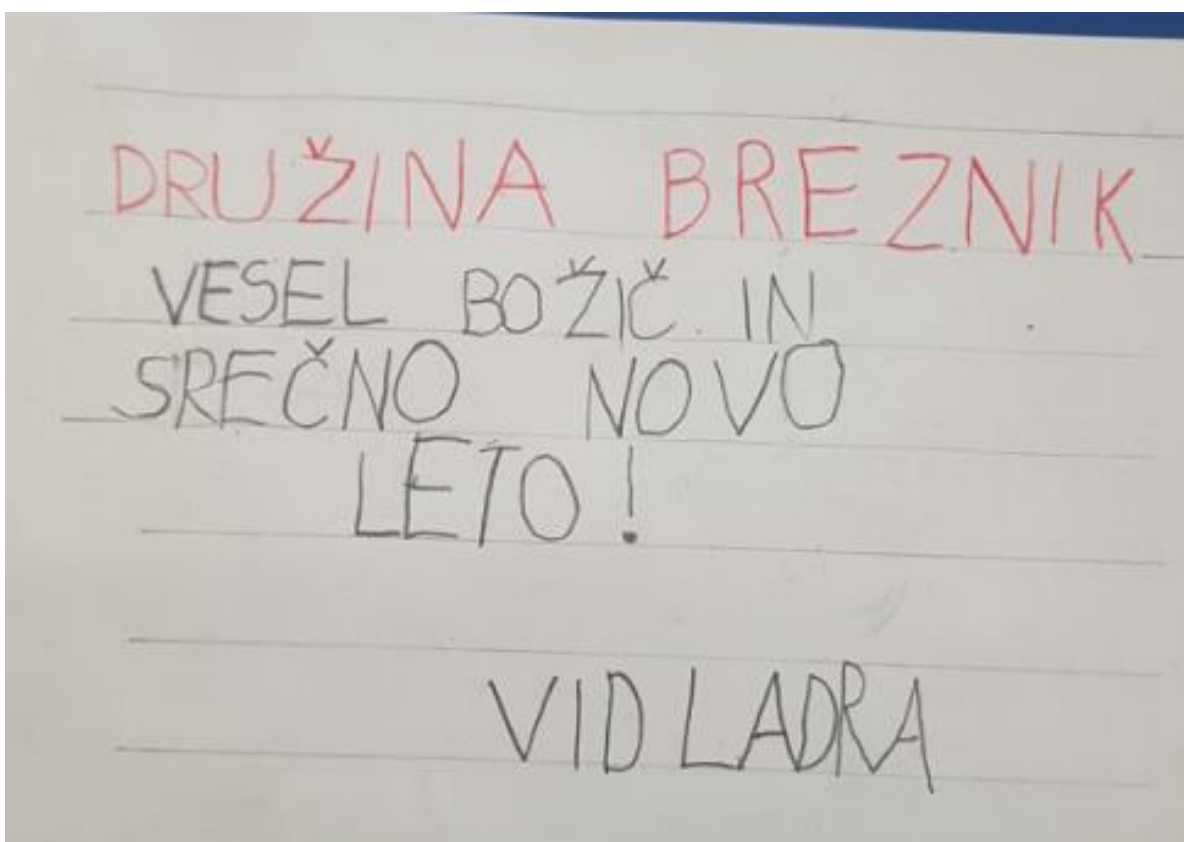 DRUŽINA BREZNIK
VESEL BOŽIČ IN
SREČNO NOVO
LETO!
VID LADRA